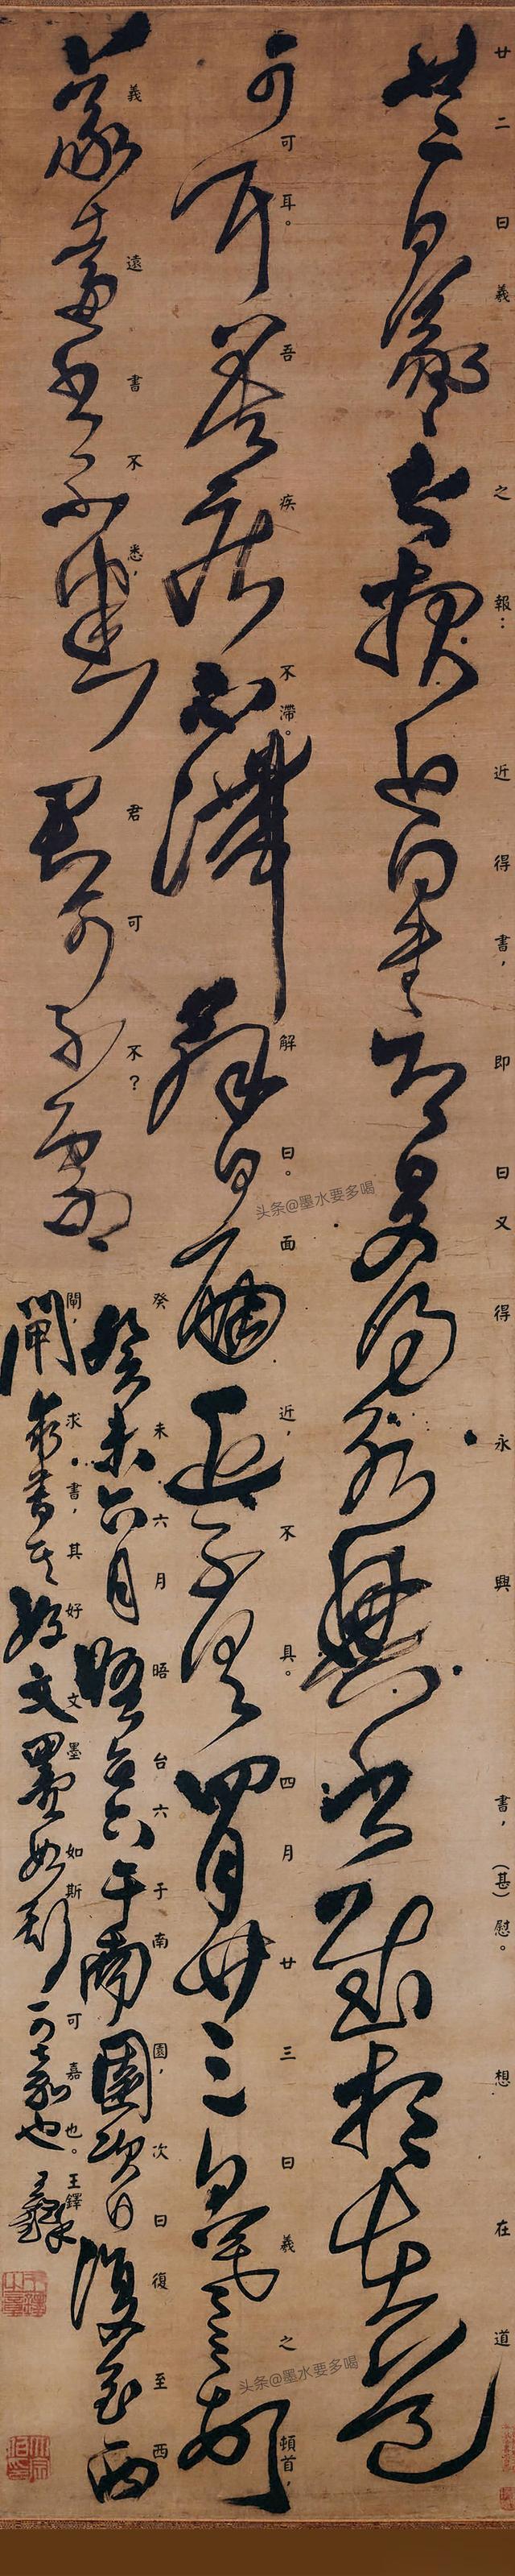 廿二日羲之報：近得書，即日又得永興書，（甚）慰。想在道
可耳。吾疾不滯。解日。面近，不具。四月廿三日羲之頓首，
義遠書不悉，君可不？
癸未六月晤台六子南園，次日復至西
閘，求書，其好文墨如斯可嘉也。王鐸
头条@墨水要多喝
头条@墨水要多喝